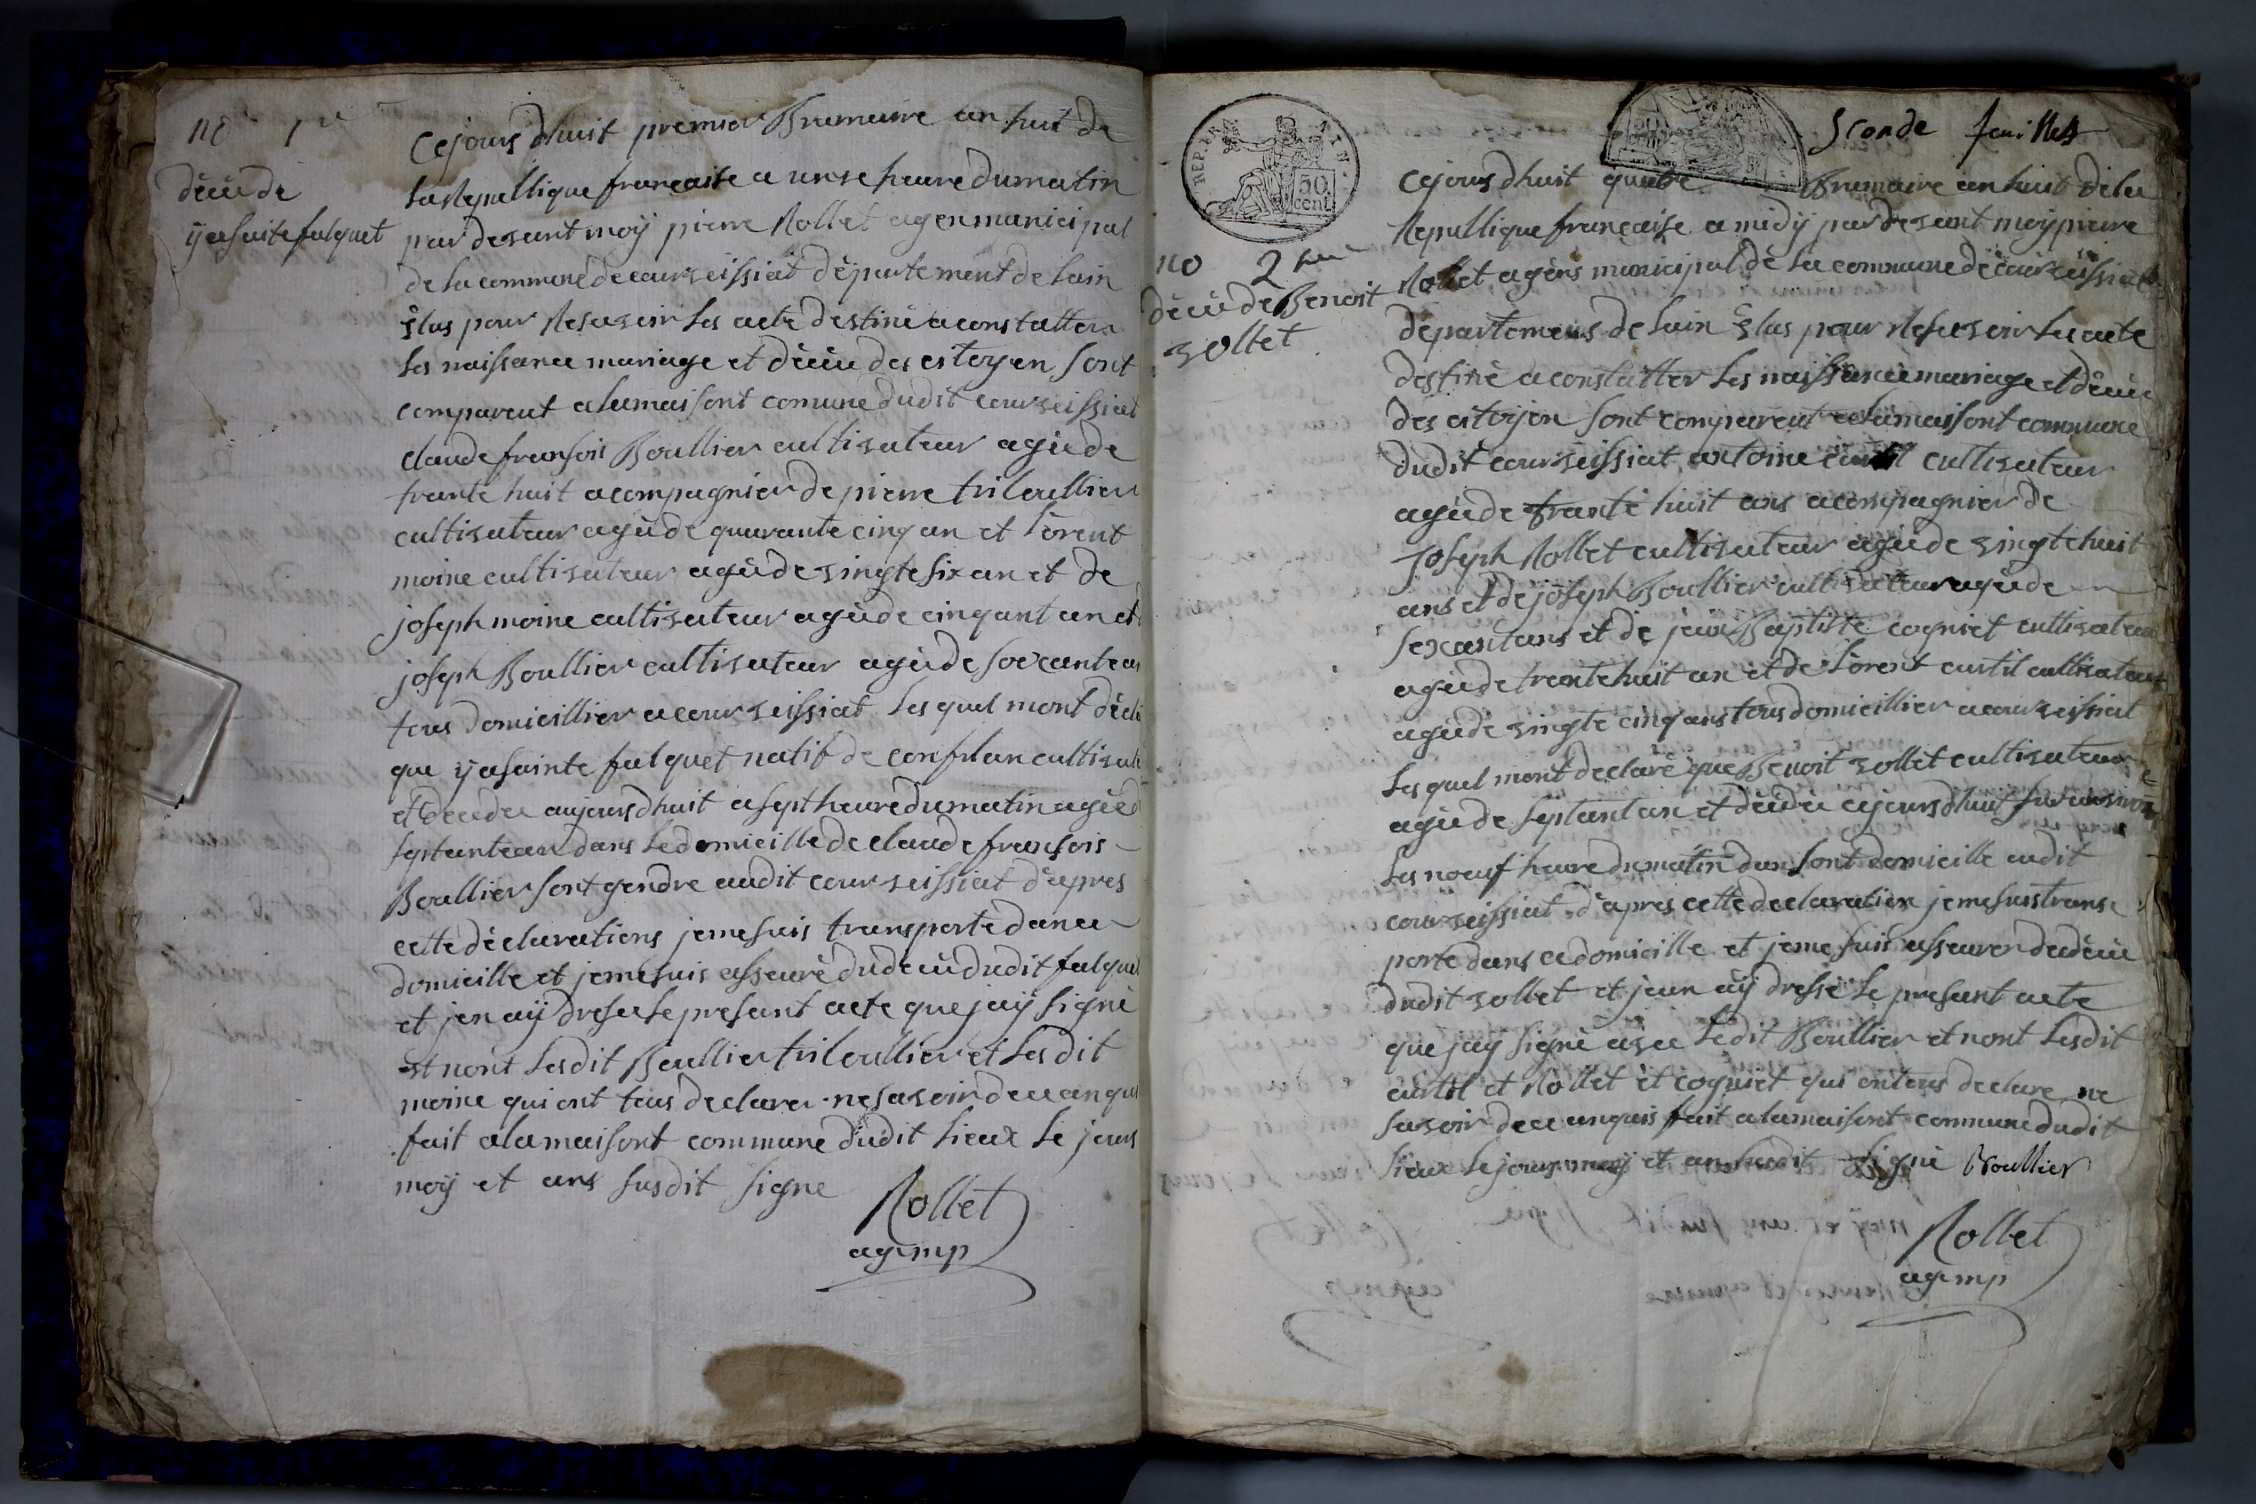 no 1er
décü de
ÿasaite falquet
Cejours dhuit premier Brumaire an huit de
la Repullique francaise a unse heure du matin
par desant moÿ pierre Rollet agen manicipal
de la commune de courseissiat departement de lain
Élus pour Resesoir les acte destiné a constatter
les naissance mariage et décü des citoyen sont
compareut a la maisont comune dudit courseissiat
claude fransois Boullier cultisateur agéde
trante huit acompagnier de pierre triloullier
cultisateur agéde quarante cinq an et lorent
moine cultisateur agéde singte six an et de
joseph moine cultisateur agéde cinqant an et
joseph Boullier cultisateur agéde soexante an
tous domicillier a courseissiat les quel mont décla
que ÿasainte falquet natif de conflan cultisate
et décédée aujoursdhuit a sept heure du matin agée d
septante an dans le domicille de claude fransois
Boullier sont gendre audit courseissiat d'apres
cette déclarations jemesuis transporte dance
domicille et jemesuis asseuré du décü dudit falquet
et jen aÿ drese le presant acte que jaÿ signé
et nont lesdit Boullier triloullier et lesdit
moine qui ont tous declarer ne sasoir dece enqui
fait a la maisont commune dudit lieux le jours
moÿ et ans susdit signe
Rollet
agemp
REP. FRA
50 cent.
Sconde feuillet
no 2eme
décü de Benoit
sollet
Cejours dhuit quatre Brumaire an huit de la
Repullique francaise a midÿ par desant moÿ pierre
Rollet agens municipal de la commune de courseissiat
departemens de lain Élus pour Resesoir les acte
destiné a constatter les naissance mariage et décü
des citoyen sont compareut a la maisont commune
dudit courseissiat antoine curtil cultisateur
agéde tranté huit ans acompagnier de
Joseph Rollet cultisateur agéde singtehuit
ans et de joseph Boullier cultisateur agéde
sexant ans et de jean Baptiste cogniet cultisateur
agéde trente huit an et de lorent curtil cultisateur
agéde singte cinq ans tous domicillier a courseissiat
les quel mont declaré que Benoit sollet cultisateur
agéde septant an et décédé cejours dhuit sur
les noeuf heure du matin dan sont domicille audit
courseissiat d'apres cette declaration jemesuis trans
porté dans cedomicille et jeme suis asseurer du décü
dudit sollet et jean aÿ dressé le presant acte
que jay signé asec ledit Boullier et nont lesdit
curtil et Rollet et cogniet qui ontous declare ne
sasoir dece enquis fait a la maisont commune dudit
lieux le jours moÿ et an susdit signé Boullier
Rollet
agemp